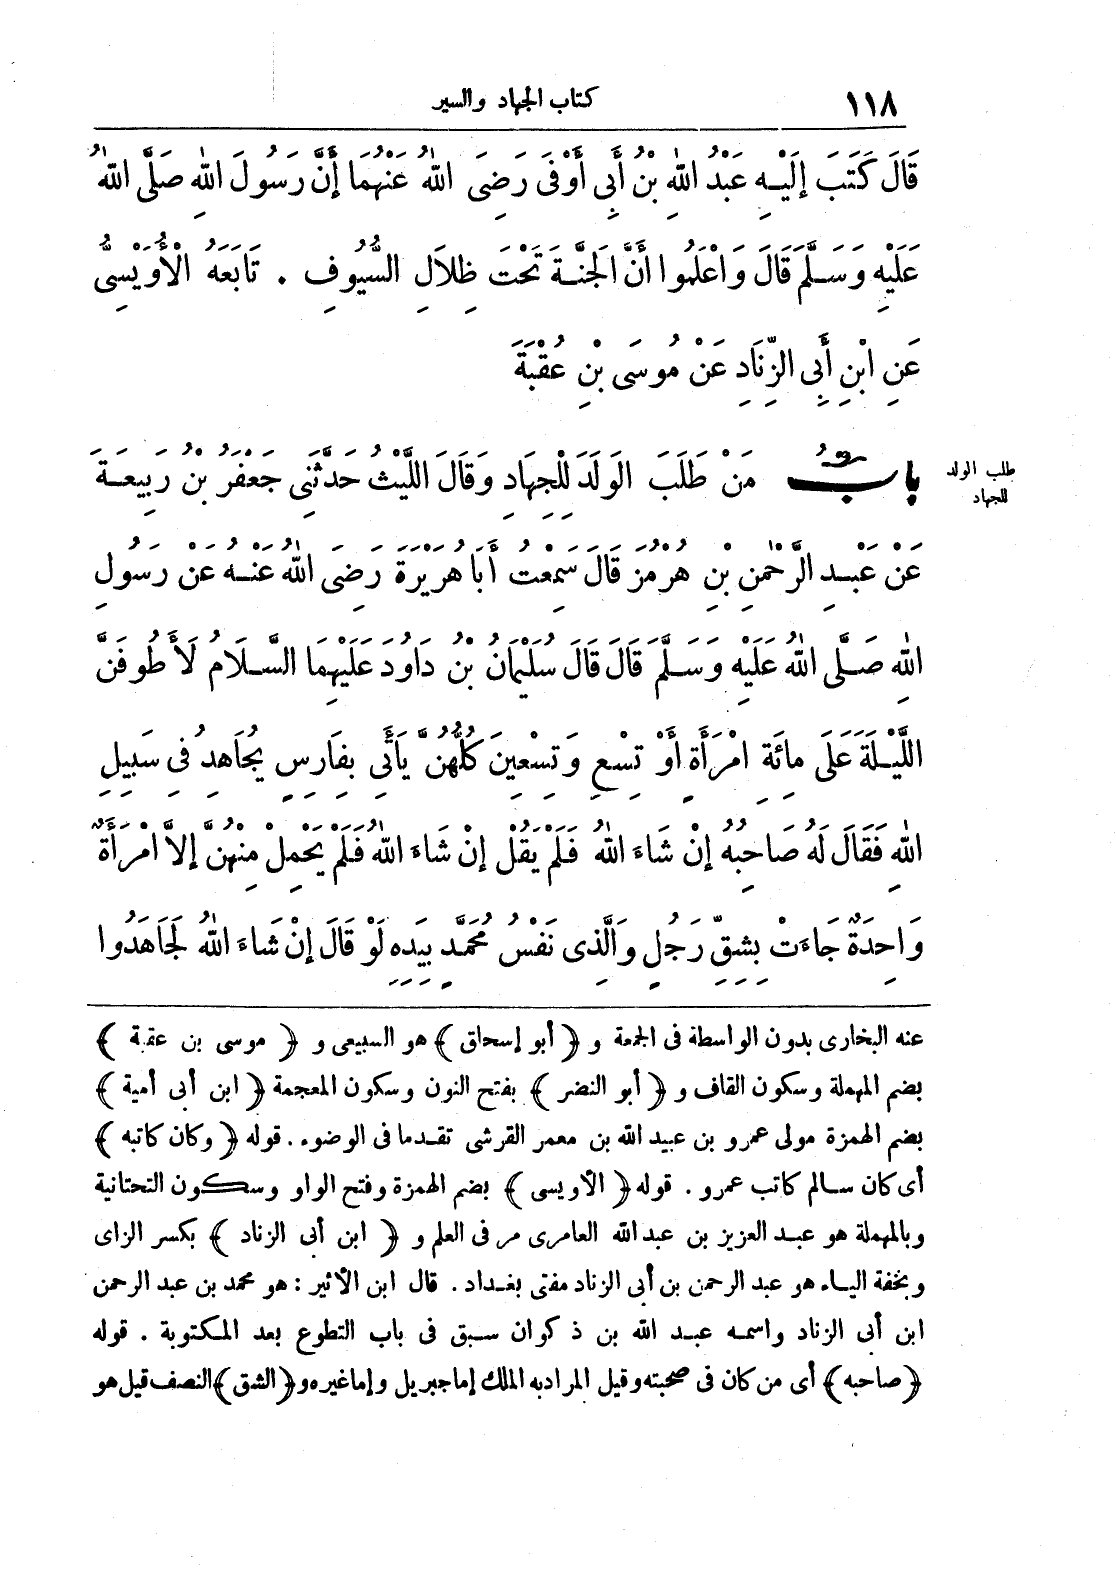 ١١٨
كتاب الجهاد والسير
قَالَ كَتَبَ إِلَيْهِ عَبْدُ اللهِ بْنُ أَبِي أَوْفَى رَضِيَ اللهُ عَنْهُمَا إِنَّ رَسُولَ اللهِ صَلَّى اللهُ
عَلَيْهِ وَسَلَّمَ قَالَ وَاعْلَمُوا أَنَّ الْجَنَّةَ تَحْتَ ظِلَالِ السُّيُوفِ . تَابَعَهُ الْأُوَيْسِىُّ
عَنِ ابْنِ أَبِى الزِّنَادِ عَنْ مُوسَى بْنِ عُقْبَةَ
طلب الولد
للجهاد
بَابُ مَنْ طَلَبَ الْوَلَدَ لِلْجِهَادِ وَقَالَ اللَّيْثُ حَدَّثَنِى جَعْفَرُ بْنُ رَبِيعَةَ
عَنْ عَبْدِ الرَّحْمٰنِ بْنِ هُرْمُزَ قَالَ سَمِعْتُ أَبَا هُرَيْرَةَ رَضِىَ اللهُ عَنْهُ عَنْ رَسُولِ
اللهِ صَلَّى اللهُ عَلَيْهِ وَسَلَّمَ قَالَ قَالَ سُلَيْمَانُ بْنُ دَاوُدَ عَلَيْهِمَا السَّلَامُ لَأَطُوفَنَّ
اللَّيْلَةَ عَلَى مِائَةِ امْرَأَةٍ أَوْ تِسْعٍ وَتِسْعِينَ كُلُّهُنَّ يَأْتِى بِفَارِسٍ يُجَاهِدُ فِى سَبِيلِ
اللهِ فَقَالَ لَهُ صَاحِبُهُ إِنْ شَاءَ اللهُ فَلَمْ يَقُلْ إِنْ شَاءَ اللهُ فَلَمْ يَحْمِلْ مِنْهُنَّ إِلَّا امْرَأَةٌ
وَاحِدَةٌ جَاءَتْ بِشِقِّ رَجُلٍ وَالَّذِى نَفْسُ مُحَمَّدٍ بِيَدِهِ لَوْ قَالَ إِنْ شَاءَ اللهُ لَجَاهَدُوا
عنه البخارى بدون الواسطة فى الجمعة و ﴿ أبو إسحاق ﴾ هو السبيعى و ﴿ موسى بن عقبة ﴾
بضم المهملة وسكون القاف و ﴿ أبو النضر ﴾ بفتح النون وسكون المعجمة ﴿ ابن أبى أمية ﴾
بضم الهمزة مولى عمرو بن عبيد الله بن معمر القرشى تقدما فى الوضوء . قوله ﴿ وكان كاتبه ﴾
أى كان سالم كاتب عمرو . قوله ﴿ الأويسى ﴾ بضم الهمزة وفتح الواو وسكون التحتانية
وبالمهملة هو عبد العزيز بن عبد الله العامرى مر فى العلم و ﴿ ابن أبى الزناد ﴾ بكسر الزاى
وبخفة الياء هو عبد الرحمن بن أبى الزناد مفتى بغداد . قال ابن الأثير : هو محمد بن عبد الرحمن
ابن أبى الزناد واسمه عبد الله بن ذكوان سبق فى باب التطوع بعد المكتوبة . قوله
﴿ صاحبه ﴾ أى من كان فى صحبته وقيل المراد به الملك إما جبريل وإما غيره و ﴿ الشق ﴾ النصف قيل هو